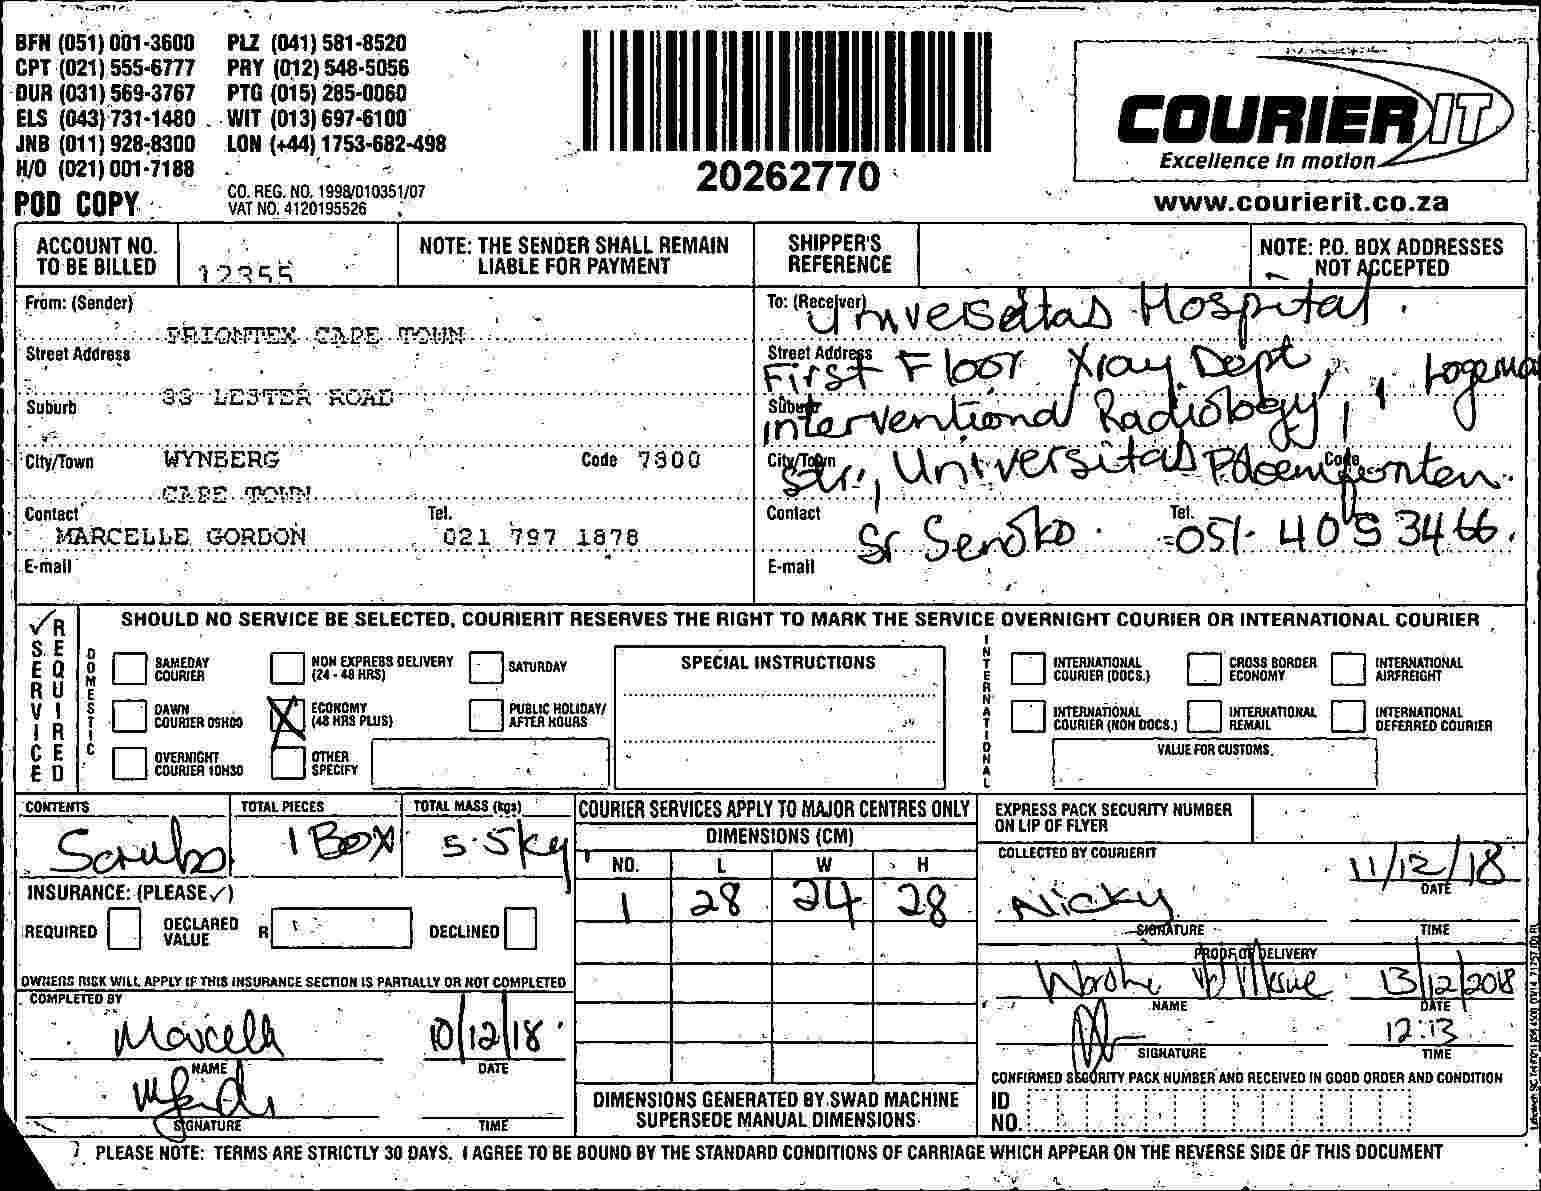 BFN (051) 001-3600 PLZ (041) 581-8520
CPT (021) 555-6777 PRY (012) 548-5056
DUR (031) 569-3767 PTG (015) 285-0060
ELS (043) 731-1480 WIT (013) 697-6100
JNB (011) 928-8300 LON (+44) 1753-682-498
H/O (021) 001-7188
POD COPY
CO. REG. NO. 1998/010351/07
VAT NO. 4120195526
20262770
COURIER IT
Excellence in motion
www.courierit.co.za
ACCOUNT NO. TO BE BILLED 12355
NOTE: THE SENDER SHALL REMAIN LIABLE FOR PAYMENT
SHIPPER'S REFERENCE
NOTE: P.O. BOX ADDRESSES NOT ACCEPTED
From: (Sender)
PRIONTEX CAPE TOWN
Street Address
33 LESTER ROAD
Suburb
City/Town WYNBERG Code 7800
CAPE TOWN
Contact MARCELLE GORDON Tel. 021 797 1878
E-mail
To: (Receiver) Universitas Hospital.
Street Address First Floor Xray Dept, Logeman
Suburb Interventional Radiology,
City/Town Str., Universitas Bloemfontein. Code
Contact Sr Senoko. Tel. 051- 4053466.
E-mail
✓ SERVICE REQUIRED
SHOULD NO SERVICE BE SELECTED, COURIERIT RESERVES THE RIGHT TO MARK THE SERVICE OVERNIGHT COURIER OR INTERNATIONAL COURIER
DOMESTIC
SAMEDAY COURIER
NON EXPRESS DELIVERY (24 - 48 HRS)
SATURDAY
DAWN COURIER 09H00
X ECONOMY (48 HRS PLUS)
PUBLIC HOLIDAY/ AFTER HOURS
OVERNIGHT COURIER 10H30
OTHER SPECIFY
SPECIAL INSTRUCTIONS
INTERNATIONAL
INTERNATIONAL COURIER (DOCS.)
CROSS BORDER ECONOMY
INTERNATIONAL AIRFREIGHT
INTERNATIONAL COURIER (NON DOCS.)
INTERNATIONAL REMAIL
INTERNATIONAL DEFERRED COURIER
VALUE FOR CUSTOMS.
CONTENTS Scrubs
TOTAL PIECES 1 Box
TOTAL MASS (kgs) 5.5kg
INSURANCE: (PLEASE ✓)
REQUIRED DECLARED VALUE R DECLINED
OWNERS RISK WILL APPLY IF THIS INSURANCE SECTION IS PARTIALLY OR NOT COMPLETED
COMPLETED BY
Marcelle 10/12/18
NAME DATE
SIGNATURE TIME
COURIER SERVICES APPLY TO MAJOR CENTRES ONLY
DIMENSIONS (CM)
NO. L W H
1 28 24 28
DIMENSIONS GENERATED BY SWAD MACHINE SUPERSEDE MANUAL DIMENSIONS
EXPRESS PACK SECURITY NUMBER ON LIP OF FLYER
COLLECTED BY COURIERIT
Nicky 11/12/18
DATE
SIGNATURE TIME
PROOF OF DELIVERY
13/12/2018
NAME DATE
12:13
SIGNATURE TIME
CONFIRMED SECURITY PACK NUMBER AND RECEIVED IN GOOD ORDER AND CONDITION
ID NO.
PLEASE NOTE: TERMS ARE STRICTLY 30 DAYS. I AGREE TO BE BOUND BY THE STANDARD CONDITIONS OF CARRIAGE WHICH APPEAR ON THE REVERSE SIDE OF THIS DOCUMENT